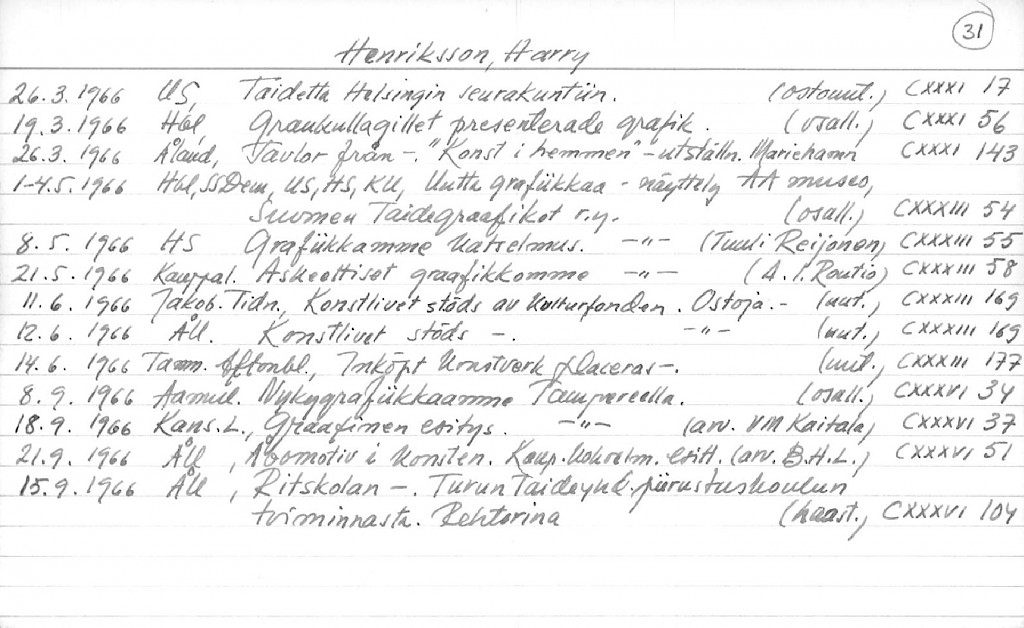 31
Henriksson, Harry
26.3.1966 US, Taidetta Helsingin seurakuntiin. (ostouut.) CXXXI 17
19.3.1966 Hbl, Grankullagillet presenterade grafik. (osall.) CXXXI 56
26.3.1966 Åland, Tavlor från -. "Konst i hemmen" - utställn. Mariehamn CXXXI 143
1-4.5.1966 Hbl, SSDem, US, HS, KU, Uutta grafiikkaa - näyttely AA museo,
Suomen Taidegraafikot r.y. (osall.) CXXXIII 54
8.5.1966 HS Grafiikkamme katselmus. -"- (Tuuli Reijonen) CXXXIII 55
21.5.1966 Kauppal. Askeettiset graafikkomme -"- (A.I. Routio) CXXXIII 58
11.6.1966 Jakob. Tidn., Konstlivet stöds av Kulturfonden. Ostoja.- (uut.) CXXXIII 169
12.6.1966 ÅU. Konstlivet stöds -. -"- (uut.) CXXXIII 169
14.6.1966 Tamm. Aftonbl., Inköpt konstverk placeras -. (uut.) CXXXIII 177
8.9.1966 Aamul. Nykygrafiikkaamme Tampereella. (osall.) CXXXVI 34
18.9.1966 Kans.L., Graafinen esitys. -"- (arv. VM Kaitala) CXXXVI 37
21.9.1966 ÅU, Åbomotiv i konsten. Kaup. kokoelm. esitt. (arv. B.H.L.) CXXXVI 51
15.9.1966 ÅU, Ritskolan -. Turun Taideyhd. piirustuskoulun
toiminnasta. Rehtorina (haast.) CXXXVI 104